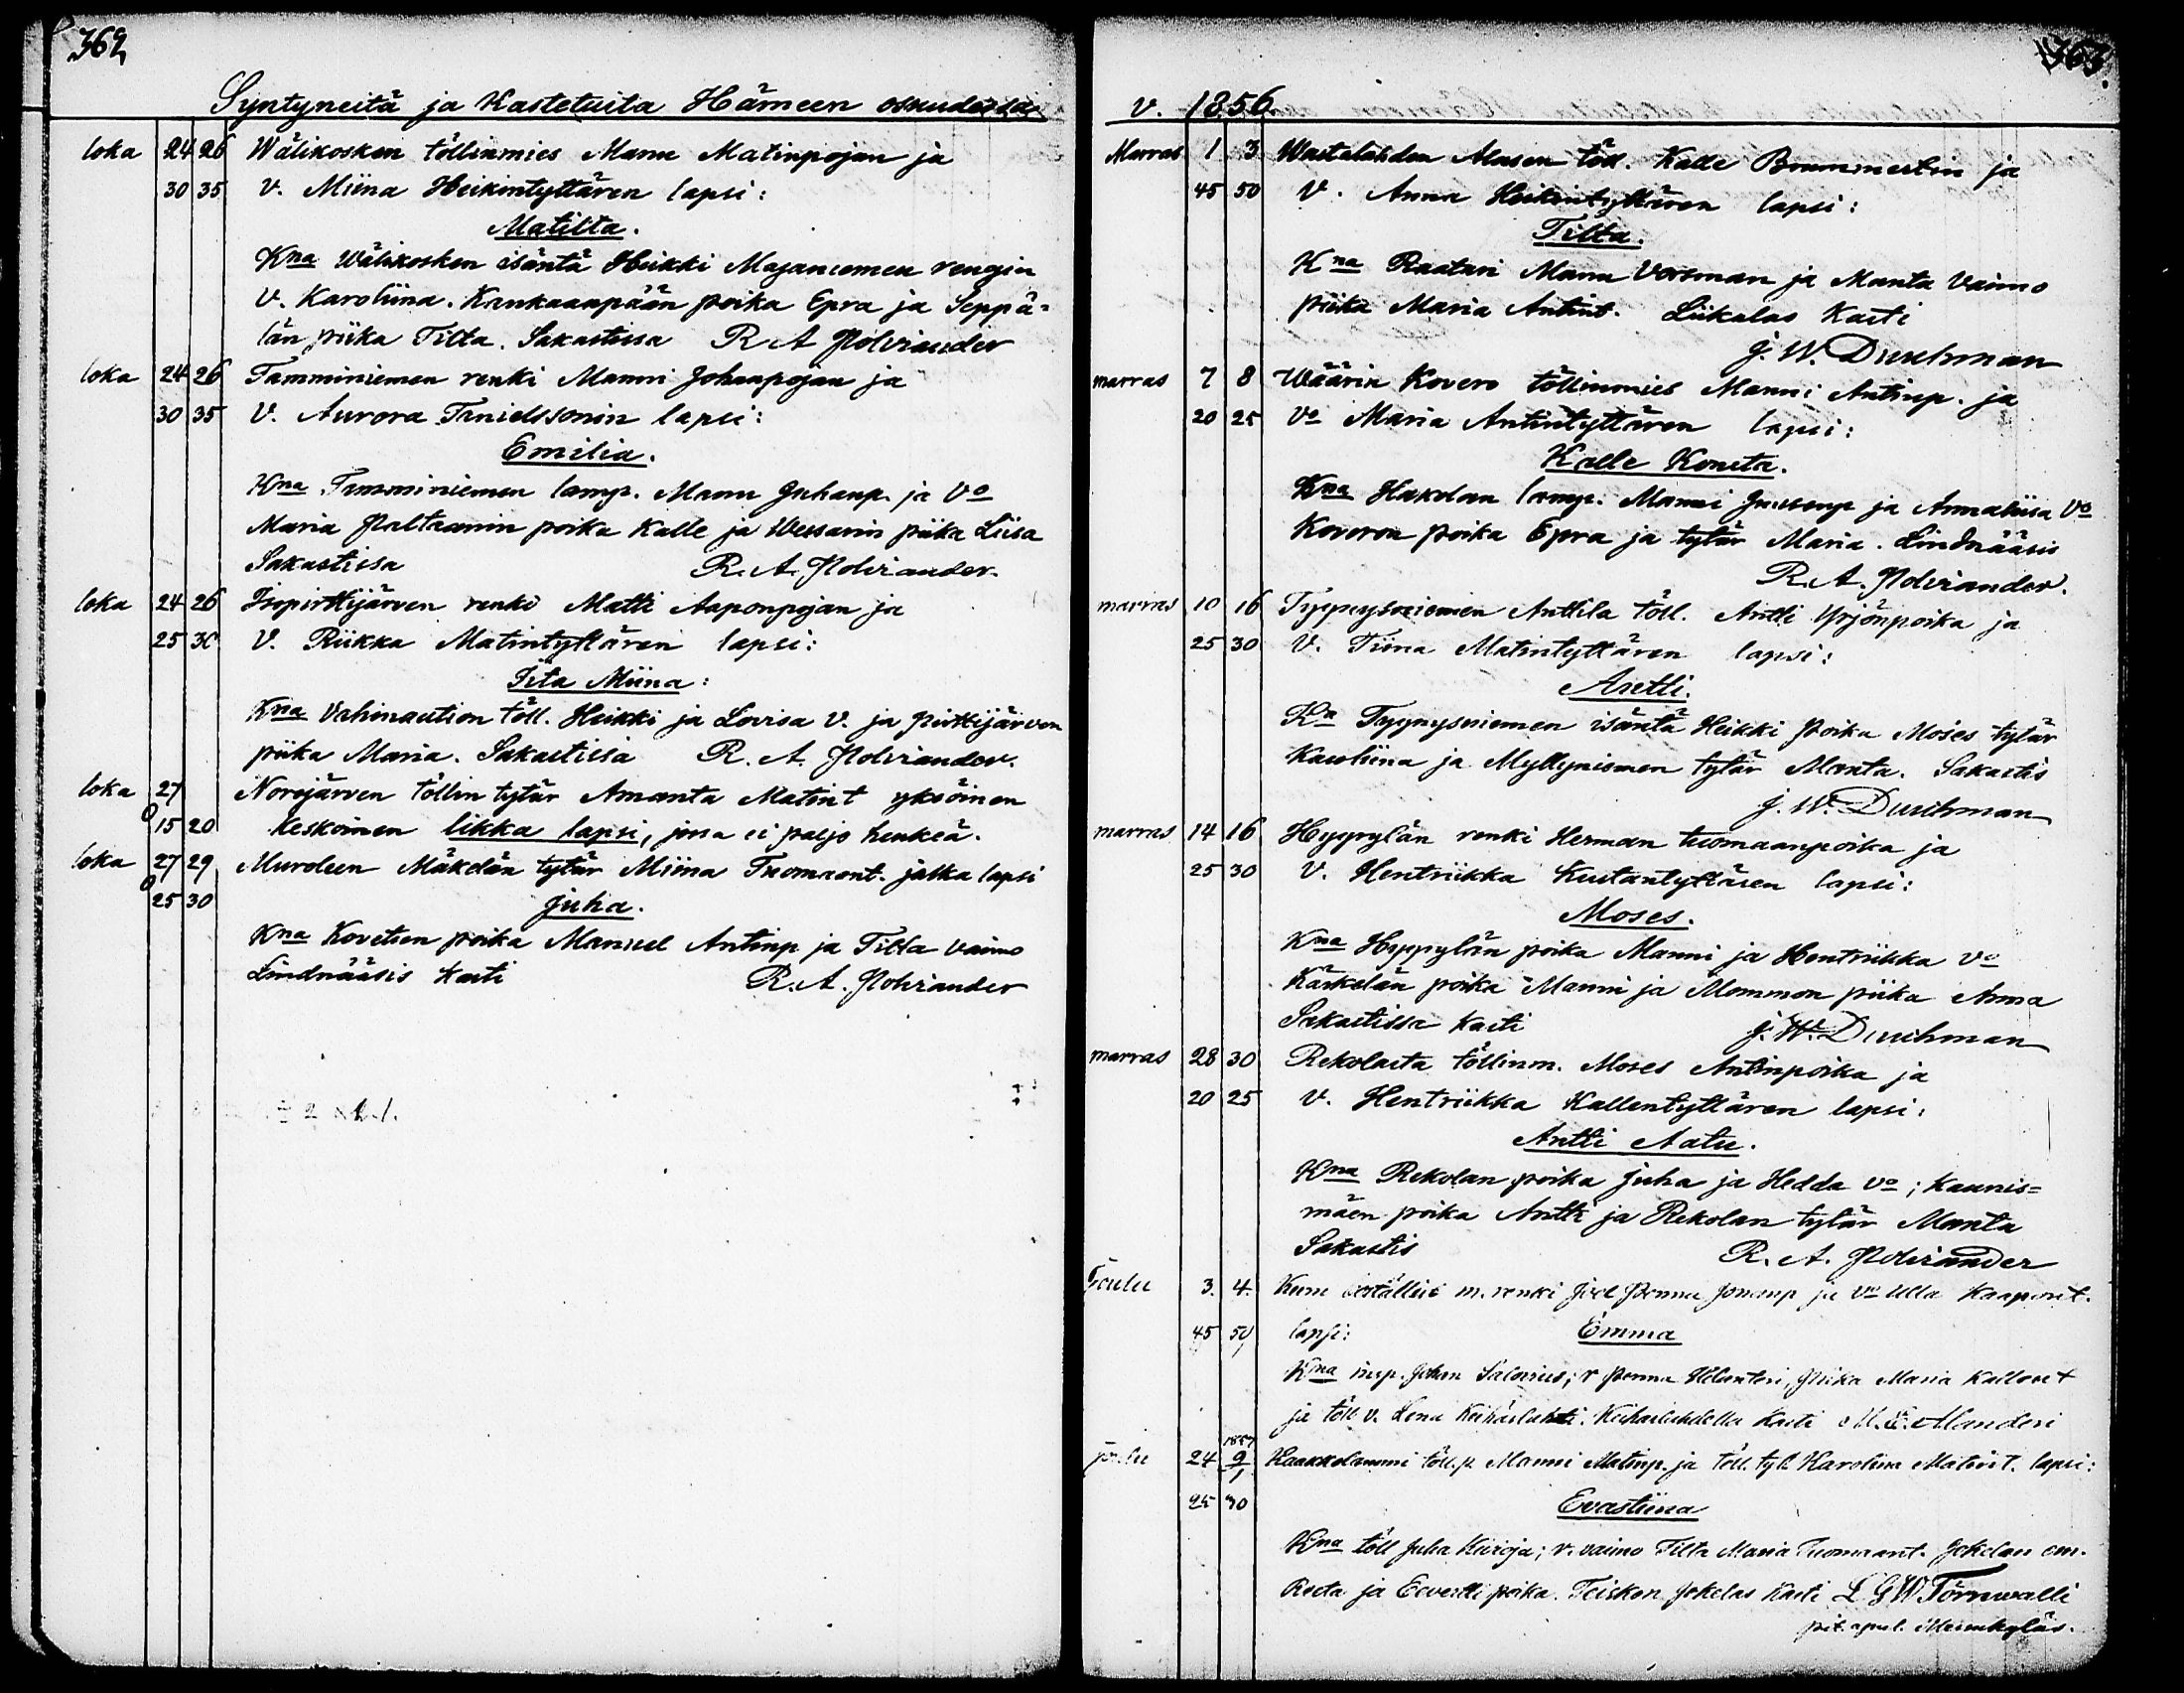 362
Syntyneitä ja Kastetuita Hämeen osuudessa
loka 24 26 Wälikosken töllinmies Manu Matinpojan ja
30 35 V. Miina Heikintyttären lapsi:
Matilta.
Kna Wälikosken isäntä Heikki Majaniemen rengin
V. Karoliina. Kankaanpään poika Epra ja Seppä=
län piika Tilta. Sakastissa R A Holviander
loka 24 26 Tamminiemen renki Manni Johanpojan ja
30 35 V. Aurora Tanielssonin lapsi:
Emilia.
Kna Tamminiemen lamp. Manu Juhanp. ja Vo
Maria Paltaanin poika Kalle ja Wessarin piika Liisa
Sakastissa R. A. Holviander.
loka 24 26 Isopirttijärven renki Matti Aaponpojan ja
25 30 V. Riikka Matintyttären lapsi:
Iita Miina:
Kna Vahinaution töll. Heikki ja Lovisa V. ja Pirttijärven
piika Maria. Sakastissa R. A. Holviander.
loka 27 Norojärven töllin tytär Amanta Matint yksöinen
0 15 20 Keskoinen likka lapsi, jossa ei paljo henkeä.
loka 27 29 Muroleen Mäkelän tytär Miina Tuomaant. jalka lapsi
0 25 30 Juha.
Kna Kovetsen poika Manuel Antinp ja Tilta vaimo
Lindnääsis Kasti R. A. Holviander
363.
V. 1856.
Marras 1 3 Wastalahden Alasen töll. Kalle Brummertin ja
45 50 V. Anna Heikintyttären lapsi:
Tilta.
Kna Raatari Manu Vorsman ja Manta Vaimo
piika Maria Antint. Liikalas Kasti
J. W. Durchman
marras 7 8 Wäärin Kovero töllinmies Manni Antinp. ja
20 25 Vo Maria Antintyttären lapsi:
Kalle Konsta.
Kna Hakolan lamp. Manni Juusenp ja Annaliisa Vo
Koveron poika Epra ja tytär Maria. Lindnääsis
R. A. Holviander.
marras 10 16 Tyypysniemen Anttila töll. Antti Yrjönpoika ja
25 30 V. Tiina Matintyttären lapsi:
Antti.
Kn Tyypysniemen isäntä Heikki Poika Moses tytär
Karoliina ja Myllyniemen tytär Manta. Sakastis
J. W. Durchman
marras 14 16 Hyppylän renki Herman tuomaanpoika ja
25 30 V. Hentriikka Kustantyttären lapsi:
Moses.
Kna Hyppylän poika Manni ja Hentriikka Vo
Kärkelän poika Manni ja Mommon piika Anna
Sakastissa Kasti J. W. Durchman
marras 28 30 Rekolasta töllinm. Moses Antinpoika ja
20 25 V. Hentriikka Kallentyttären lapsi:
Antti Aatu.
Kna Rekolan poika Juha ja Hedda Vo; Kaunis=
mäen poika Antti ja Rekolan tytär Manta
Sakastis R. A. Holviander
Joulu 3. 4. Kuru m. renki Joel Pennu Jonanp ja Vo Ulla Kaaporit.
45 50 lapsi: Emma
Kna insp. Johan Salonius; r Pennu Helanteri, Piika Maria Kallent
ja töll v. Lena Keihäslahti. Keihäslahdella Kasti Manderi
joulu 24 1857 9/1 Haakkolammi töll.p. Manni Matinp. ja töll. tyt. Karoliina Matint. lapsi:
25 30 Evastiina
Kna töll Juha Kiiroja; r. vaimo Tilta Maria Tuomaant. Jokelan em.
Roeta ja Eevertti poika. Teiskon Jokelas Kasti L G W Törnwalli
pit. apul. Messukyläs.